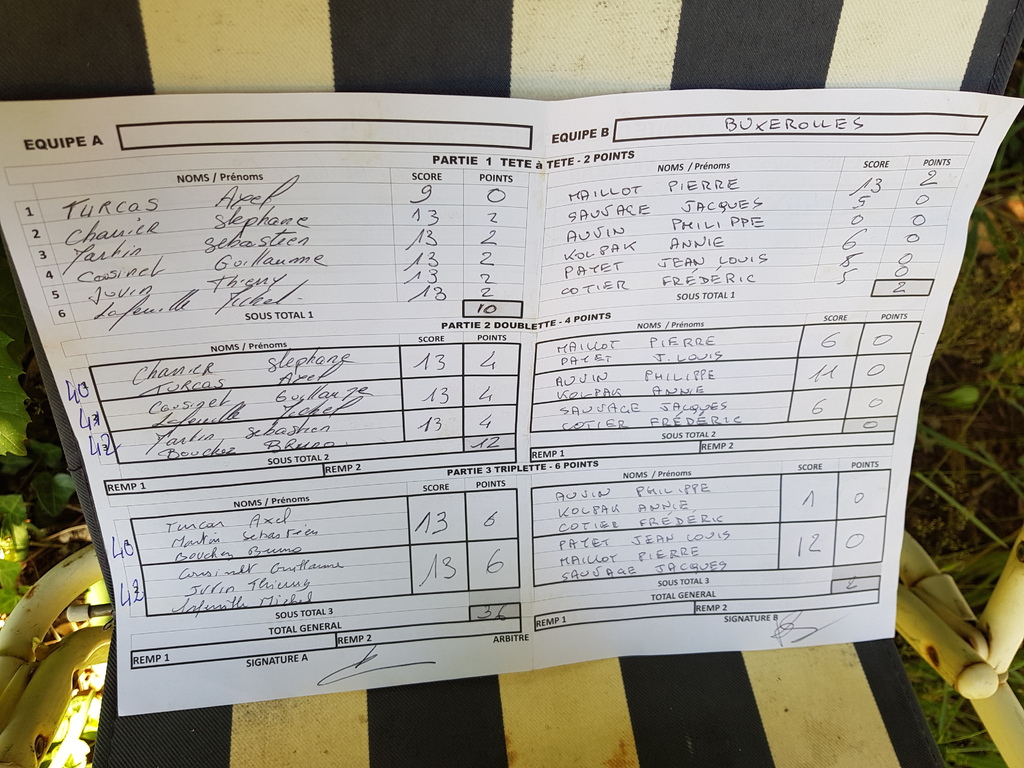 EQUIPE A
EQUIPE B BUXEROLLES
PARTIE 1 TETE à TETE - 2 POINTS
NOMS / Prénoms SCORE POINTS
1 TURCAS Axel 9 0
2 Charrier Stéphane 13 2
3 Martin Sébastien 13 2
4 Cousinet Guillaume 13 2
5 Juvin Thierry 13 2
6 Lafeuille Michel 13 2
SOUS TOTAL 1 10
NOMS / Prénoms SCORE POINTS
MAILLOT PIERRE 13 2
SAUVAGE JACQUES 5 0
AUVIN PHILIPPE 0 0
KOLPAK ANNIE 6 0
PAYET JEAN LOUIS 8 0
COTIER FRÉDÉRIC 5 0
SOUS TOTAL 1 2
PARTIE 2 DOUBLETTE - 4 POINTS
NOMS / Prénoms SCORE POINTS
Charrier Stéphane 13 4
40 TURCAS Axel
Cousinet Guillaume 13 4
41 Lafeuille Michel
Martin Sébastien 13 4
42 Boucher Bruno
SOUS TOTAL 2 12
REMP 1 REMP 2
NOMS / Prénoms SCORE POINTS
MAILLOT PIERRE 6 0
PAYET J. LOUIS
AUVIN PHILIPPE 11 0
KOLPAK ANNIE
SAUVAGE JACQUES 6 0
COTIER FRÉDÉRIC
SOUS TOTAL 2 0
REMP 1 REMP 2
PARTIE 3 TRIPLETTE - 6 POINTS
NOMS / Prénoms SCORE POINTS
Turcas Axel
Martin Sébastien 13 6
40 Boucher Bruno
Cousinet Guillaume
Juvin Thierry 13 6
42 Lafeuille Michel
SOUS TOTAL 3
TOTAL GENERAL 34
REMP 1 REMP 2
SIGNATURE A
ARBITRE
NOMS / Prénoms SCORE POINTS
AUVIN PHILIPPE
KOLPAK ANNIE 1 0
COTIER FRÉDÉRIC
PAYET JEAN LOUIS
MAILLOT PIERRE 12 0
SAUVAGE JACQUES
SOUS TOTAL 3
TOTAL GENERAL 2
REMP 1 REMP 2
SIGNATURE B